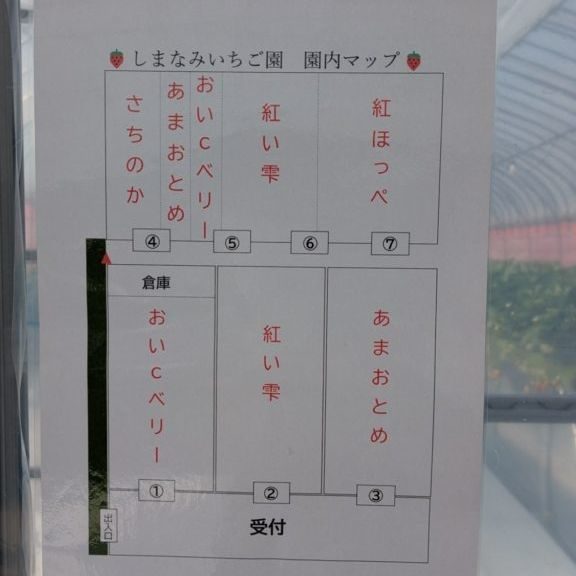 🍓しまなみいちご園　園内マップ🍓
さちのか
あまおとめ
おいcベリー
紅い雫
紅ほっぺ
④
⑤
⑥
⑦
倉庫
おいcベリー
紅い雫
あまおとめ
①
②
③
出入口
受付